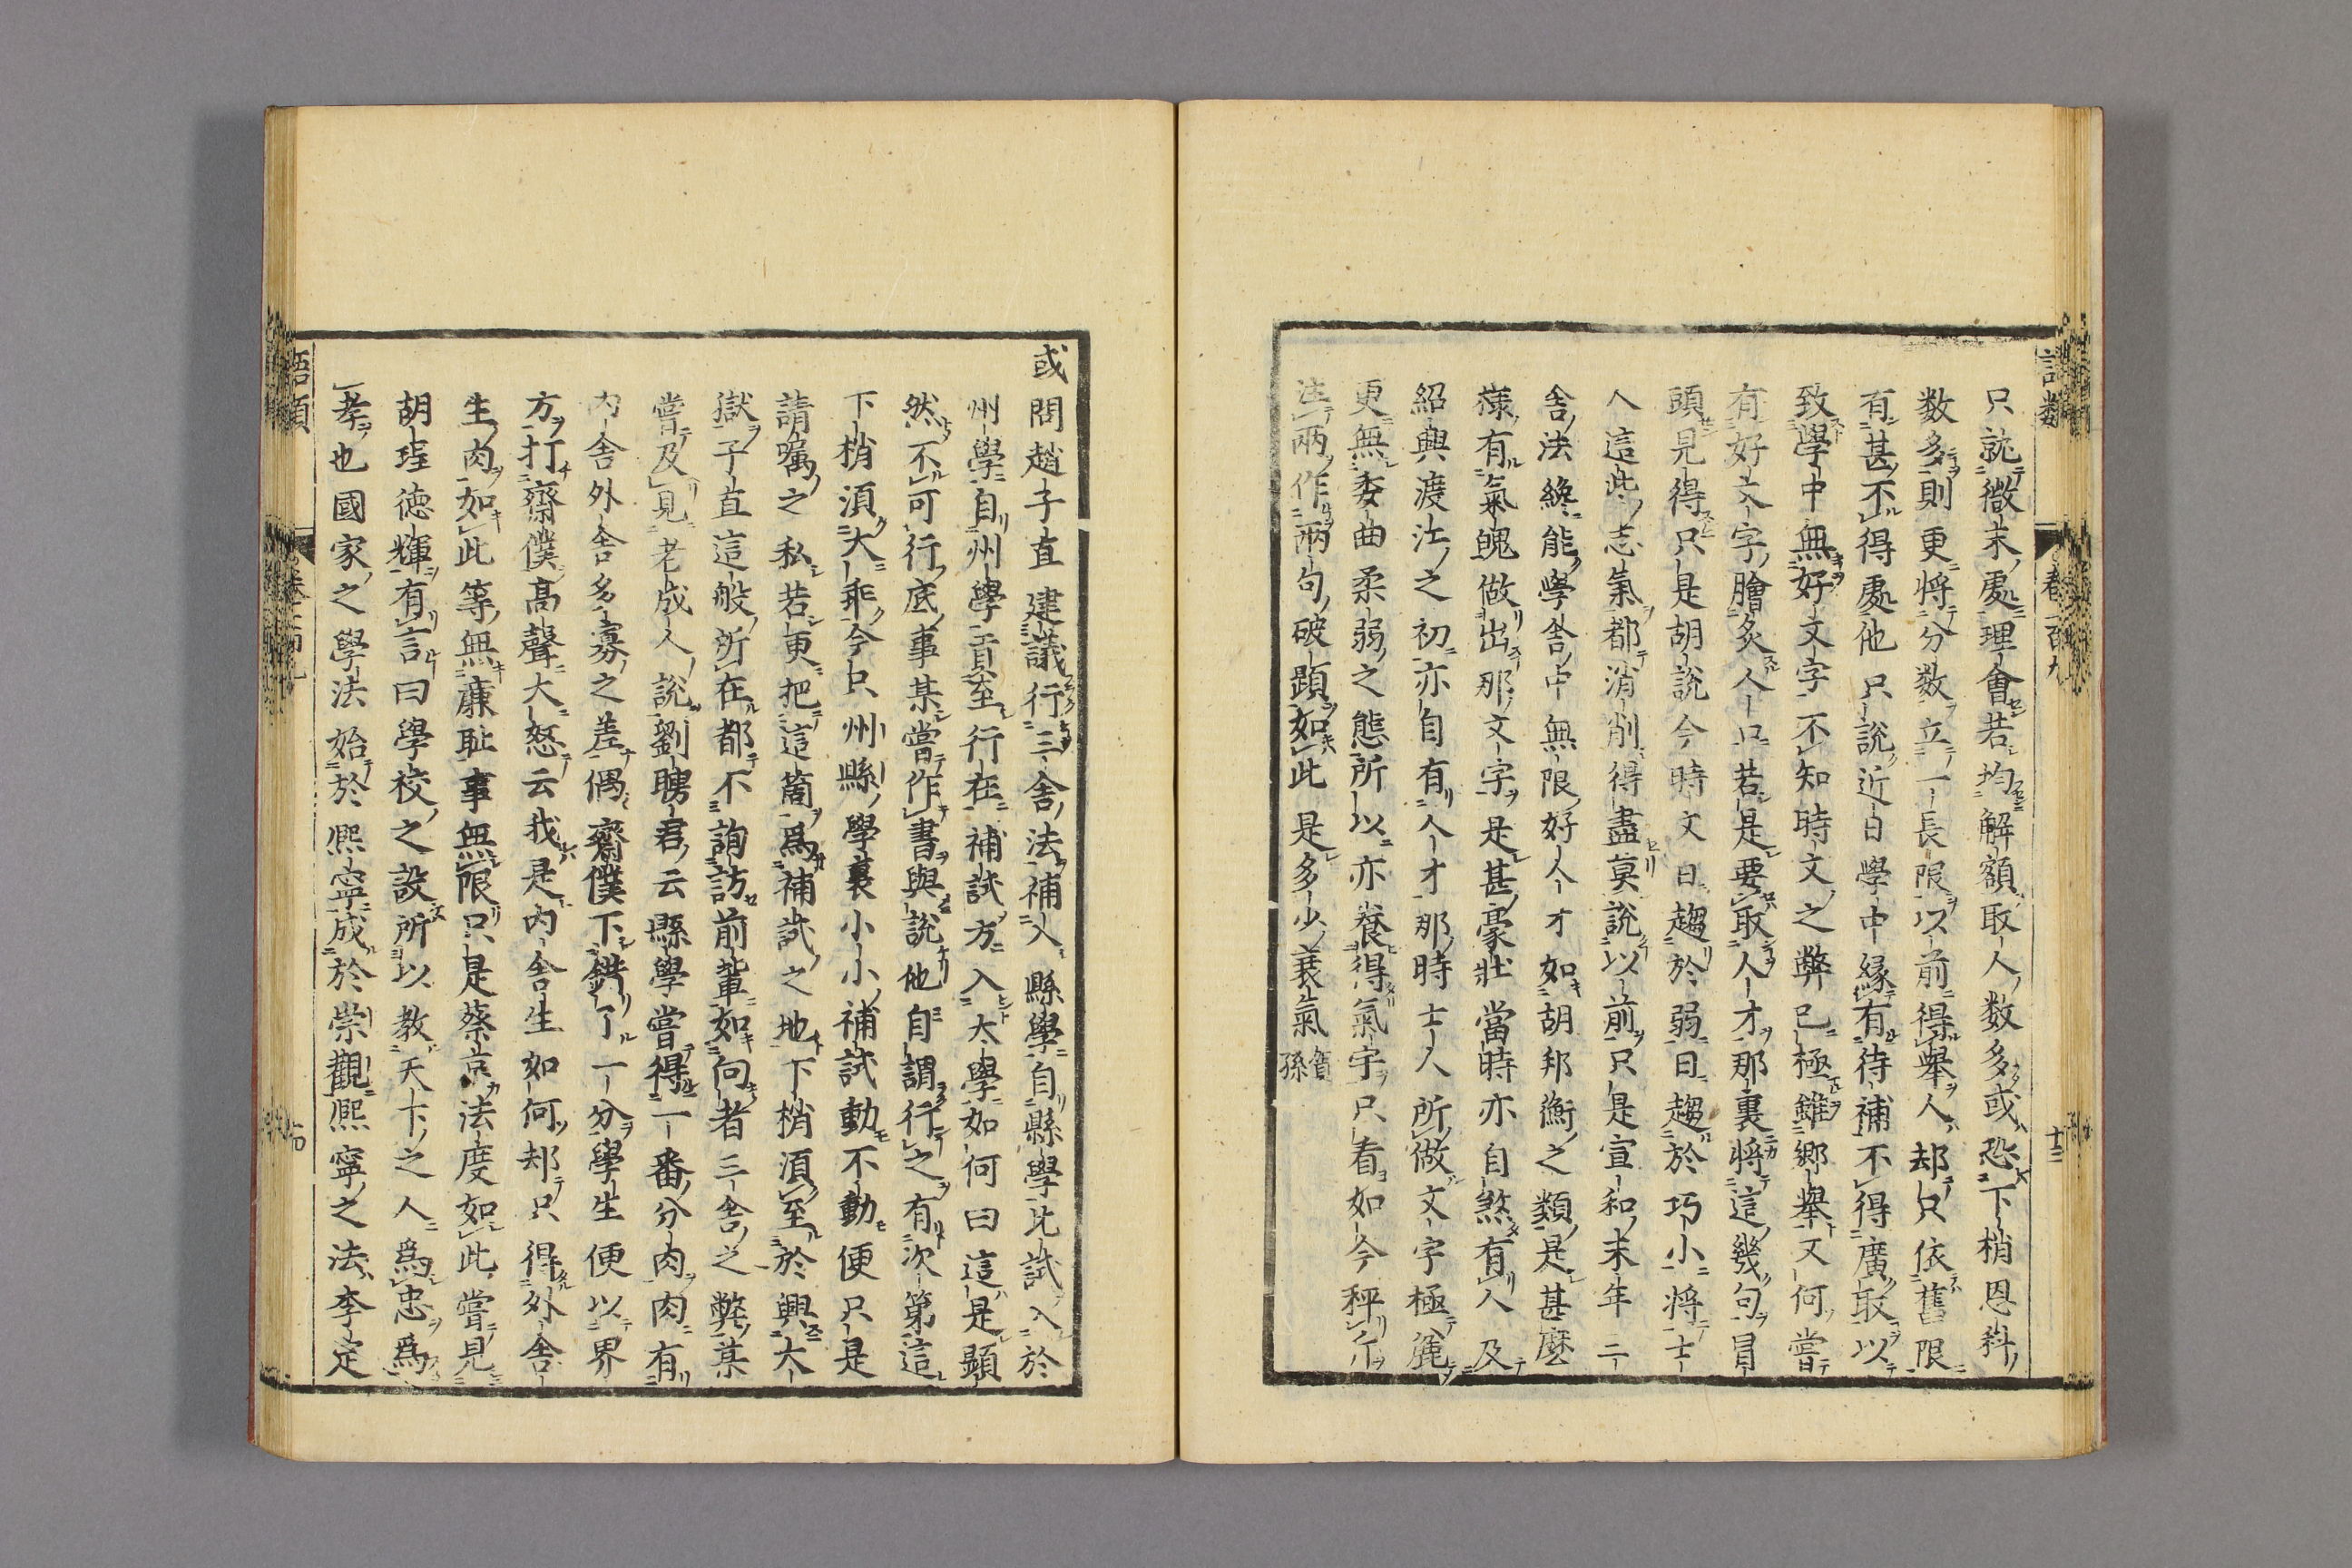 語類 卷一百九 十三
只就微末處理會若均解額取人數多或恐下梢恩科
数多則更將分数立一長限以前得舉人却只依舊限
有甚不得處他只說近日學中緣有待補不得廣取以
致學中無好文字不知時文之弊已極雖鄉舉又何嘗
有好文字膾炙人口若是要取人才那裏將這幾句冒
頭見得只是胡說今時文日趨於弱日趨於巧小將士
人這些志氣都消削得盡莫說以前只是宣和末年三
舍法纔能學舍中無限好人才如胡邦衡之類是甚麼
様有氣魄做出那文字是甚豪壯當時亦自煞有人及
紹興渡江之初亦自有人才那時士人所做文字極麄
更無委曲柔弱之態所以亦養得氣宇只看如今秤斤
注兩作兩句破題如此是多少衰氣 賀孫
或問趙子直建議行三舍法補入縣學自縣學比試入於
州學自州學貢至行在補試方入太學如何曰這是顯
然不可行底事某嘗作書與說他自謂行之有次第這
下梢須大乖今只州縣學裏小小補試動不動便只是
請囑之私若更把這箇爲補試之地下梢須至於興大
獄子直這般所在都不詢訪前輩如向者三舍之弊某
嘗及見老成人說劉聘君云縣學嘗得一番分肉肉有
內舍外舍多寡之差偶齋僕下錯了一分學生便以界
方打齋僕高聲大怒云我是內舍生如何却只得外舍
生肉如此等無廉耻事無限只是蔡京法度如此嘗見
胡珵德輝有言曰學校之設所以教天下之人爲忠爲
孝也國家之學法始於熙寧成於崇觀熙寧之法李定
語類 卷一百九